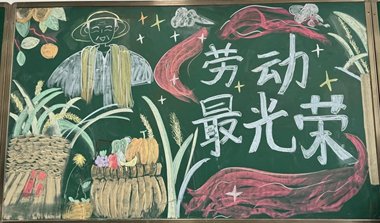 劳动
最光荣